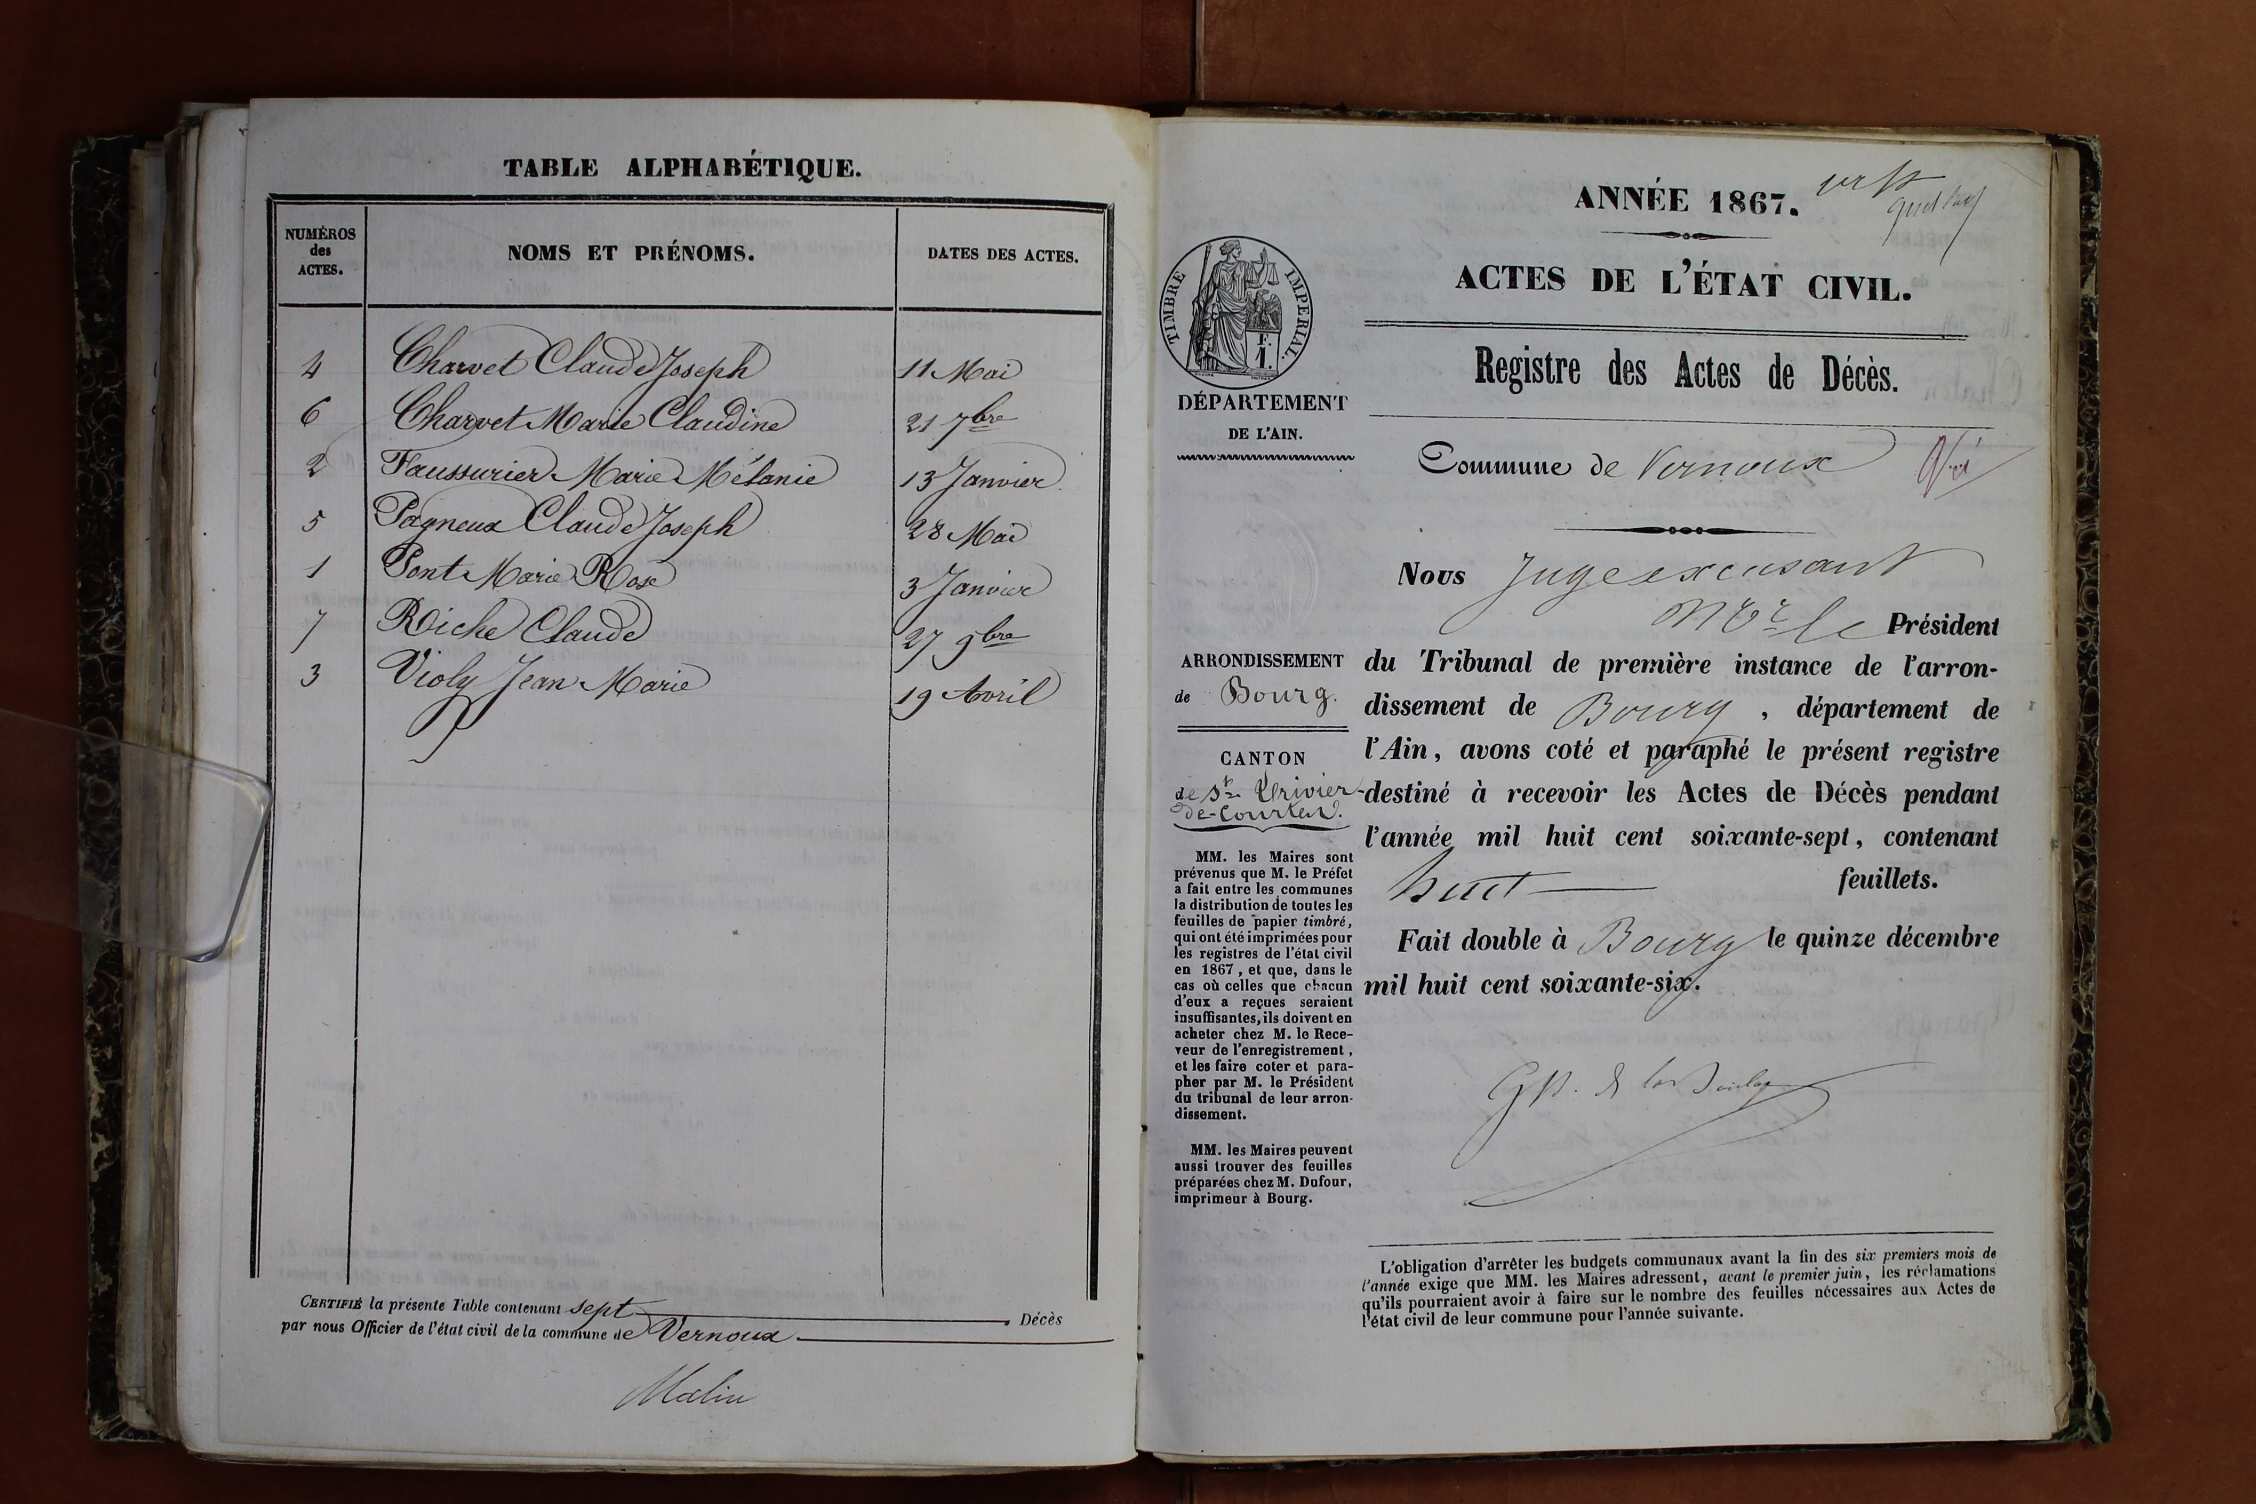 TABLE ALPHABÉTIQUE.
NUMÉROS des ACTES. NOMS ET PRÉNOMS. DATES DES ACTES.
4 Charvet Claude Joseph 11 Mai
6 Charvet Marie Claudine 21 7bre
2 Faussurier Marie Mélanie 13 Janvier
5 Pagneux Claude Joseph 28 Mai
1 Pont Marie Rose 3 Janvier
7 Riche Claude 27 9bre
3 Violy Jean Marie 19 Avril
CERTIFIÉ la présente Table contenant sept Décès
par nous Officier de l'état civil de la commune de Vernoux
Malin
ANNÉE 1867.
ACTES DE L'ÉTAT CIVIL.
Registre des Actes de Décès.
TIMBRE IMPERIAL.
F.
1.
DÉPARTEMENT
DE L'AIN.
Commune de Vernoux
Nous Juge excusant
Mr le Président
du Tribunal de première instance de l'arron-
dissement de Bourg, département de
l'Ain, avons coté et paraphé le présent registre
destiné à recevoir les Actes de Décès pendant
l'année mil huit cent soixante-sept, contenant
huit feuillets.
Fait double à Bourg le quinze décembre
mil huit cent soixante-six.
ARRONDISSEMENT
de Bourg.
CANTON
de St Trivier-
de-Courtes.
MM. les Maires sont
prévenus que M. le Préfet
a fait entre les communes
la distribution de toutes les
feuilles de papier timbré,
qui ont été imprimées pour
les registres de l'état civil
en 1867, et que, dans le
cas où celles que chacun
d'eux a reçues seraient
insuffisantes, ils doivent en
acheter chez M. le Rece-
veur de l'enregistrement,
et les faire coter et para-
pher par M. le Président
du tribunal de leur arron-
dissement.
MM. les Maires peuvent
aussi trouver des feuilles
préparées chez M. Dufour,
imprimeur à Bourg.
L'obligation d'arrêter les budgets communaux avant la fin des six premiers mois de
l'année exige que MM. les Maires adressent, avant le premier juin, les réclamations
qu'ils pourraient avoir à faire sur le nombre des feuilles nécessaires aux Actes de
l'état civil de leur commune pour l'année suivante.